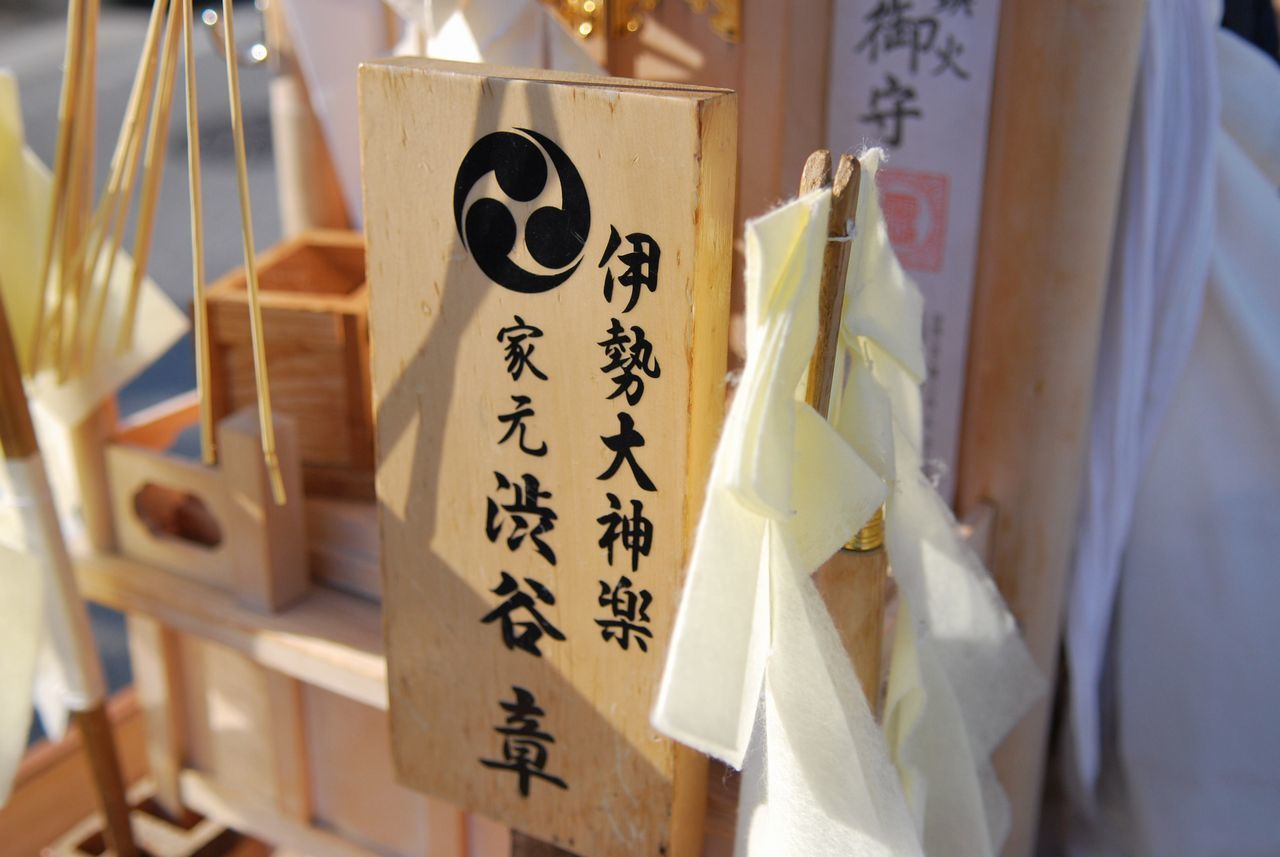 伊勢大神楽
家元 渋谷 章
火
御守